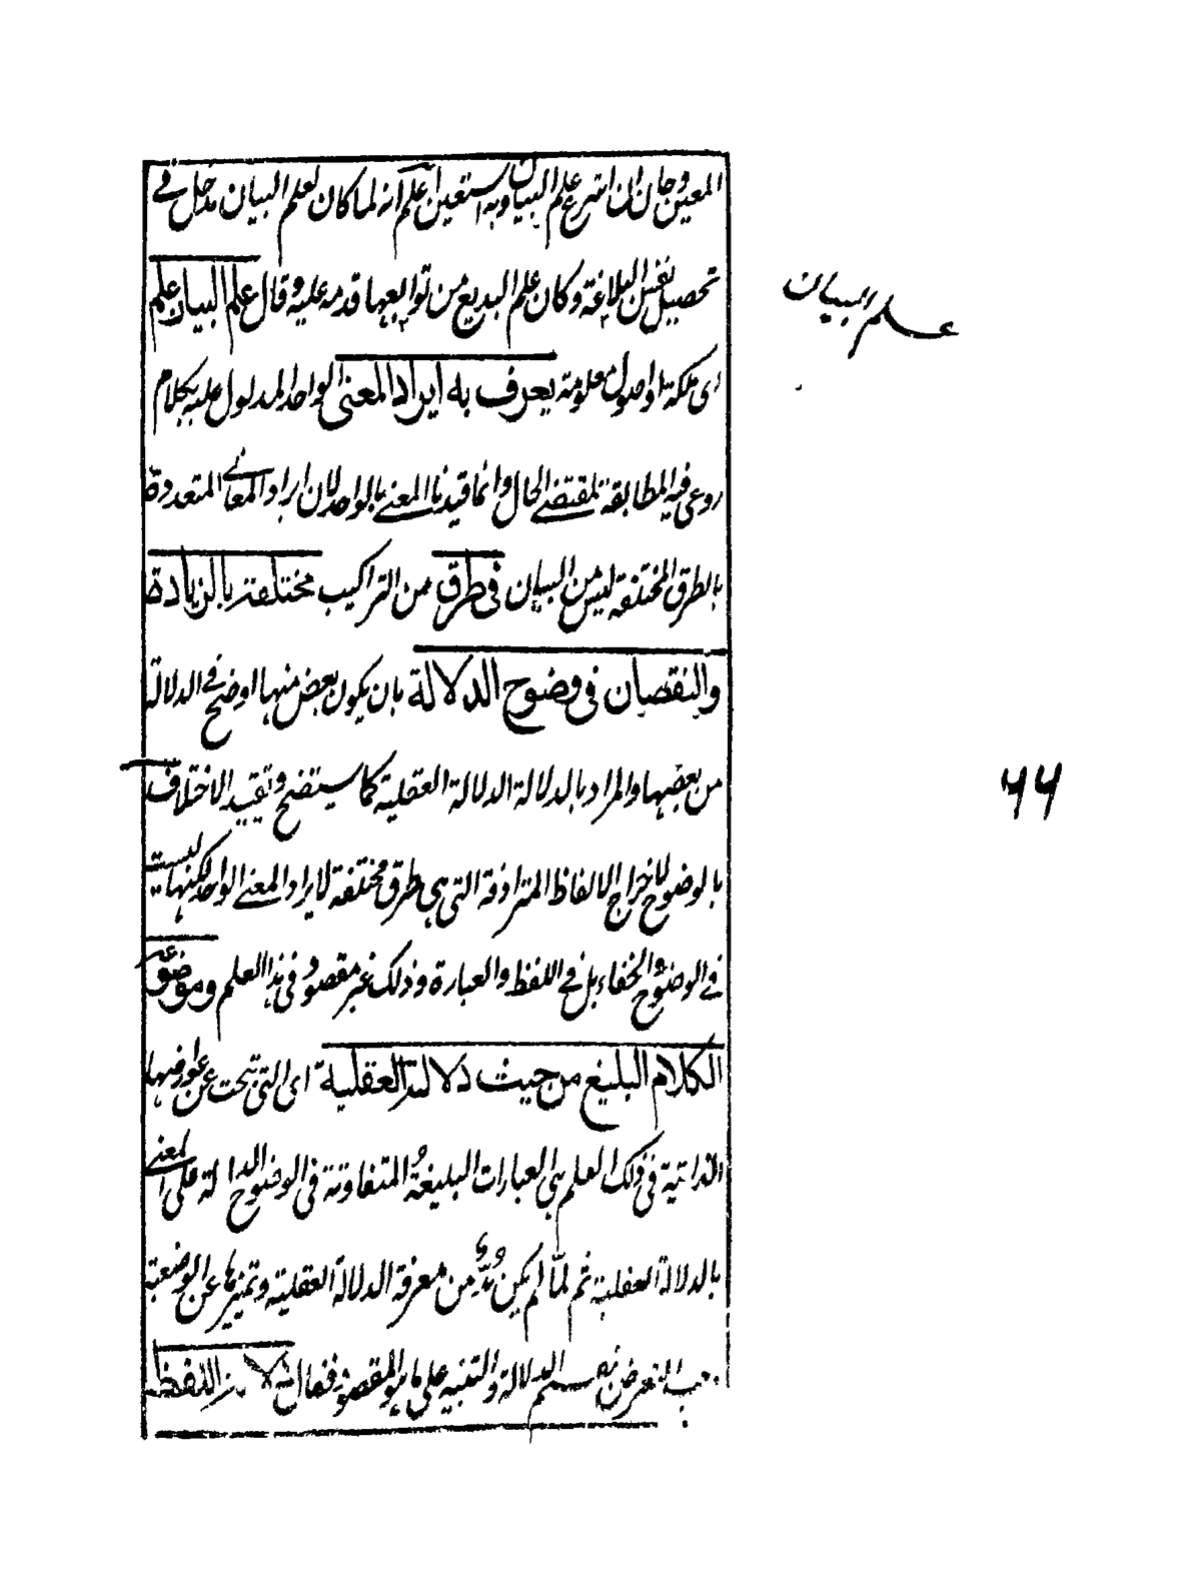 المعين وحان ان اشرع علم البيان وبه استعين اعلم انه لما كان لعلم البيان مدخل في
تحصيل نفس البلاغة وكان علم البديع من توابعها قدمه عليه وقال علم البيان علم
علم البيان
اى ملكة او اصول معلومة يعرف به ايراد المعنى الواحد المدلول عليه بكلام
روعى فيه المطابقة لمقتضى الحال وانما قيدنا المعنى بالواحد لان ايراد المعاني المتعددة
بالطرق المختلفة ليس من البيان فى طرق من التراكيب مختلفة بالزيادة
والنقصان فى وضوح الدلالة بان يكون بعض منها اوضح في الدلالة
من بعضها والمراد بالدلالة الدلالة العقلية كما سيتضح وتقييد الاختلاف
٦٦
بالوضوح لاخراج الالفاظ المترادفة التى هى طرق مختلفة لايراد المعنى الواحد لكنها ليست
في الوضوح والخفاء بل في اللفظ والعبارة وذلك غير مقصود فى هذا العلم وموضوعه
الكلام البليغ من حيث دلالته العقلية اى التى تبحث عن عوارضها
الذاتية فى ذلك العلم هى العبارات البليغة المتفاوتة فى الوضوح الدالة على المعنى
بالدلالة العقلية ثم لمّا لم يكن بُدٌّ من معرفة الدلالة العقلية وتميزها عن الوضعية
وجب التعرض تقسيم الدلالة والتنبيه على ما هو المقصود فقال دلالة اللفظ